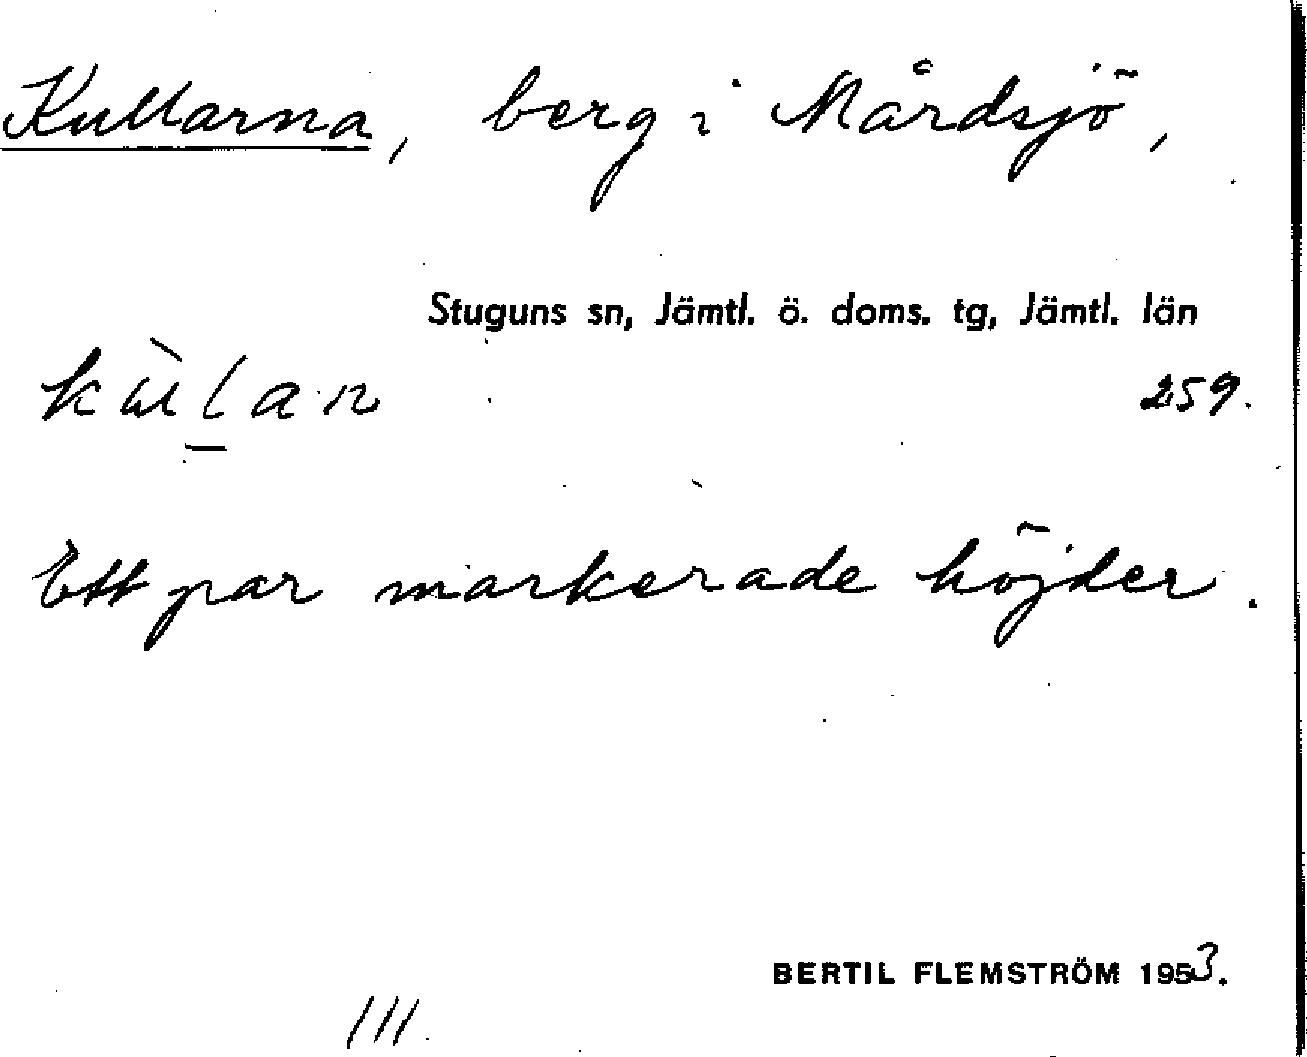 Kullarna, berg i Mårdsjö,
Stuguns sn, Jämtl. ö. doms. tg, Jämtl. län
259.
Ett par markerade höjder.
BERTIL FLEMSTRÖM 1953.